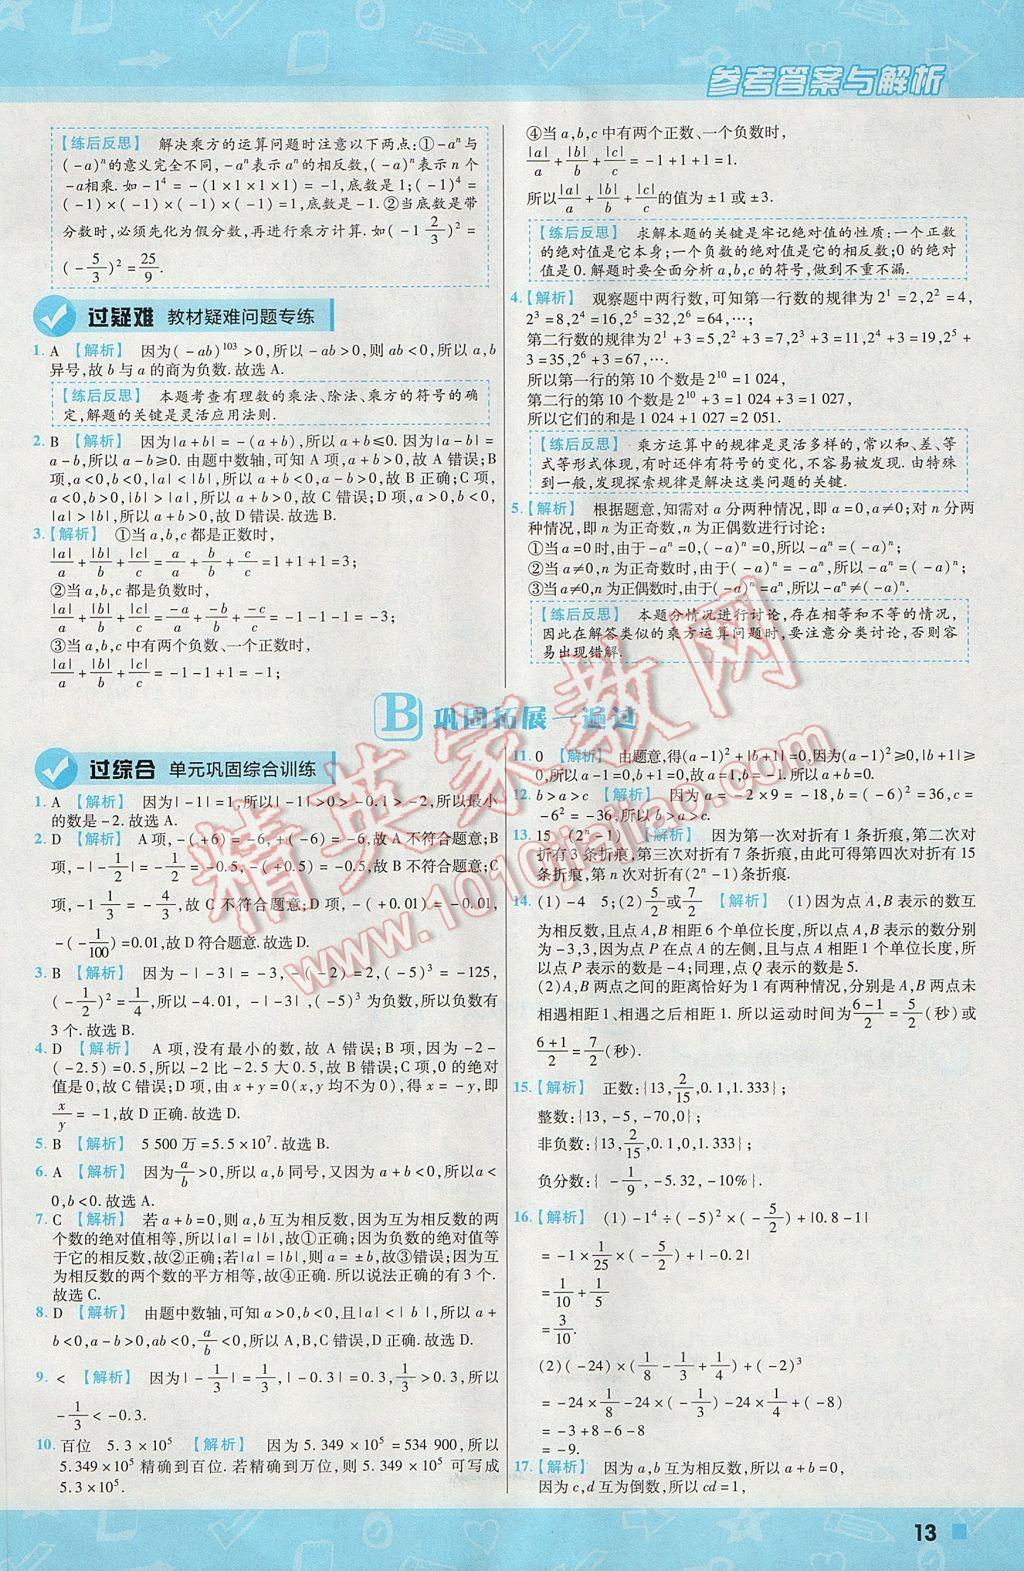 参考答案与解析
【练后反思】 解决乘方的运算问题时注意以下两点:①-aⁿ与
(-a)ⁿ的意义完全不同,-aⁿ表示aⁿ的相反数,(-a)ⁿ表示n个
-a相乘.如-1⁴=-(1×1×1×1)=-1,底数是1;(-1)⁴=
(-1)×(-1)×(-1)×(-1)=1,底数是-1.②当底数是带
分数时,必须先化为假分数,再进行乘方计算.如(-1 2/3)²=
(-5/3)²=25/9.
过疑难 教材疑难问题专练
1. A 【解析】 因为(-ab)¹⁰³>0,所以-ab>0,则ab<0,所以a,b
异号,故b与a的商为负数.故选A.
【练后反思】 本题考查有理数的乘法、除法、乘方的符号的确
定,解题的关键是灵活应用法则.
2. B 【解析】 因为|a+b|=-(a+b),所以a+b≤0.因为|a-b|=
a-b,所以a-b≥0.由题中数轴,可知A项,a+b>0,故A错误;B
项,a<0,b<0,|a|<|b|,所以a+b<0,a-b>0,故B正确;C项,
a<0,b>0,|b|>|a|,所以a+b>0,故C错误;D项,a>0,b<0,
|a|>|b|,所以a+b>0,故D错误.故选B.
3.【解析】 ①当a,b,c都是正数时,
|a|/a+|b|/b+|c|/c=a/a+b/b+c/c=1+1+1=3;
②当a,b,c都是负数时,
|a|/a+|b|/b+|c|/c=-a/a+-b/b+-c/c=-1-1-1=-3;
③当a,b,c中有两个负数、一个正数时,
|a|/a+|b|/b+|c|/c=-1-1+1=-1;
④当a,b,c中有两个正数、一个负数时,
|a|/a+|b|/b+|c|/c=-1+1+1=1.
所以|a|/a+|b|/b+|c|/c的值为±1或±3.
【练后反思】 求解本题的关键是牢记绝对值的性质:一个正数
的绝对值是它本身;一个负数的绝对值是它的相反数;0的绝对
值是0.解题时要全面分析a,b,c的符号,做到不重不漏.
4.【解析】 观察题中两行数,可知第一行数的规律为2¹=2,2²=4,
2³=8,2⁴=16,2⁵=32,2⁶=64,…;
第二行数的规律为2¹+3=5,2²+3=7,2³+3=11,2⁴+3=19,2⁵+
3=35,2⁶+3=67,….
所以第一行的第10个数是2¹⁰=1 024,
第二行的第10个数是2¹⁰+3=1 024+3=1 027,
所以它们的和是1 024+1 027=2 051.
【练后反思】 乘方运算中的规律是灵活多样的,常以和、差、等
式等形式体现,有时还伴有符号的变化,不容易被发现.由特殊
到一般,发现探索规律是解决这类问题的关键.
5.【解析】 根据题意,知需对a分两种情况,即a=0,a≠0;对n分两
种情况,即n为正奇数,n为正偶数进行讨论:
①当a=0时,由于-aⁿ=0,(-a)ⁿ=0,所以-aⁿ=(-a)ⁿ;
②当a≠0,n为正奇数时,由于(-a)ⁿ=-aⁿ,所以-aⁿ=(-a)ⁿ;
③当a≠0,n为正偶数时,由于(-a)ⁿ=aⁿ,所以-aⁿ≠(-a)ⁿ.
【练后反思】 本题分情况进行讨论,存在相等和不等的情况,
因此在解答类似的乘方运算问题时,要注意分类讨论,否则容
易出现错解.
B 巩固拓展一遍过
过综合 单元巩固综合训练
1. A 【解析】 因为|-1|=1,所以|-1|>0>-0.1>-2,所以最小
的数是-2.故选A.
2. D 【解析】 A项,-(+6)=-6,+(-6)=-6,故A不符合题意;B
项,-|-1/2|=-1/2=-0.5,-(+0.5)=-0.5,故B不符合题意;C
项,-1 1/3=-4/3,故C不符合题意;D项,-(+0.01)=-0.01,
-(-1/100)=0.01,故D符合题意.故选D.
3. B 【解析】 因为-|-3|=-3,-(-2)=2,(-5)³=-125,
(-1/2)²=1/4,所以-4.01,-|-3|,(-5)³为负数,所以负数有
3个.故选B.
4. D 【解析】 A项,没有最小的数,故A错误;B项,因为-2-
(-2.5)=0.5,所以-2比-2.5大0.5,故B错误;C项,0的绝对
值是0,故C错误;D项,由x+y=0(x,y均不为0),得x=-y,即
x/y=-1,故D正确.故选D.
5. B 【解析】 5 500万=5.5×10⁷.故选B.
6. A 【解析】 因为a/b>0,所以a,b同号,又因为a+b<0,所以a<
0,b<0.故选A.
7. C 【解析】 若a+b=0,则a,b互为相反数,因为互为相反数的两
个数的绝对值相等,所以|a|=|b|,故①正确;因为负数的绝对值等
于它的相反数,故②正确;若|a|=|b|,则a=±b,故③错误;因为互
为相反数的两个数的平方相等,故④正确.所以说法正确的有3个.
故选C.
8. D 【解析】 由题中数轴,可知a>0,b<0,且|a|<|b|,所以a+
b<0,ab<0,a-b>0,a/b<0,所以A,B,C错误,D正确.故选D.
9. < 【解析】 因为|-1/3|=1/3,|-0.3|=0.3,1/3>0.3,所以
-1/3<-0.3.
10. 百位 5.3×10⁵ 【解析】 因为5.349×10⁵=534 900,所以
5.349×10⁵精确到百位.若精确到万位,则5.349×10⁵可写成
5.3×10⁵.
11. 0 【解析】 由题意,得(a-1)²+|b+1|=0,因为(a-1)²≥0,|b+1|≥
12. b>a>c 【解析】 因为a=-2×9=-18,b=(-6)²=36,c=
-6²=-36,所以b>a>c.
13. 15 (2ⁿ-1) 【解析】 因为第一次对折有1条折痕,第二次对
折有3条折痕,第三次对折有7条折痕,由此可得第四次对折有15
条折痕,第n次对折有(2ⁿ-1)条折痕.
14. (1)-4 5;(2)5/2或7/2 【解析】 (1)因为点A,B表示的数互
为相反数,且点A,B相距6个单位长度,所以点A,B表示的数分别
为-3,3,因为点P在点A的左侧,且与点A相距1个单位长度,所
以点P表示的数是-4;同理,点Q表示的数是5.
(2)A,B两点之间的距离恰好为1有两种情况,分别是A,B两点未
相遇相距1、相遇之后相距1.所以运动时间为6-1/2=5/2(秒)或
6+1/2=7/2(秒).
15.【解析】 正数:{13,2/15,0.1,1.333};
整数:{13,-5,-70,0};
非负数:{13,2/15,0.1,0,1.333};
负分数:{-1/9,-5.32,-10%}.
16.【解析】 (1)-1⁴÷(-5)²×(-5/2)+|0.8-1|
=-1×1/25×(-5/2)+|-0.2|
=1/10+1/5
=3/10.
(2)(-24)×(1/8-1/3+1/4)+(-2)³
=-24×1/8-24×(-1/3)-24×1/4+(-8)
=-3+8-6-8
=-9.
17.【解析】 因为a,b互为相反数,所以a+b=0.
因为c,d互为倒数,所以cd=1,
13
精英家教网
www.1010jiajiao.com